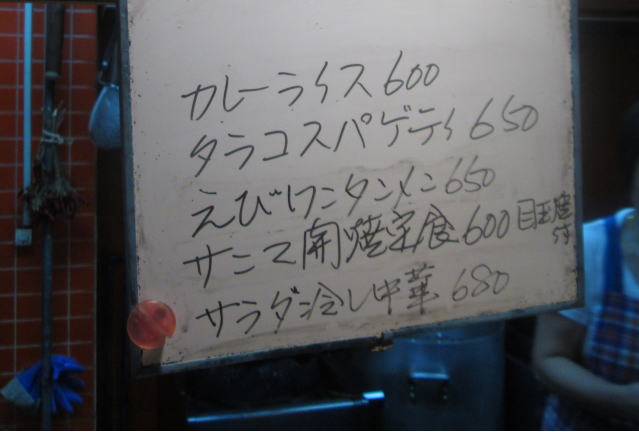 カレーライス 600
タラコスパゲティ 650
えびワンタンメン 650
サンマ開焼定食 600 目玉焼付
サラダ冷し中華 680